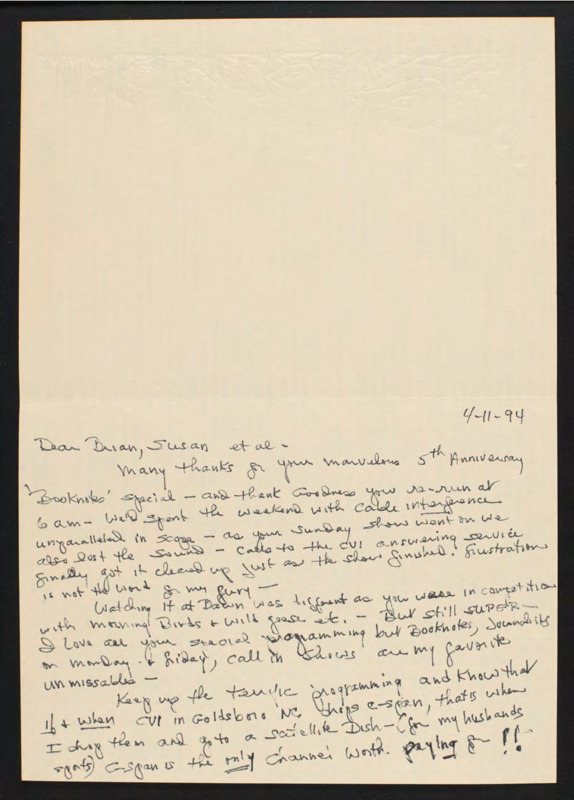 4-11-94
Dear Brian, Susan et al -
Many thanks for your marvelous 5th Anniversary
'Booknotes' special - and thank Goodness you re-run at
6 am - We'd spent the weekend with Cable interference
unparalleled in scope - as your Sunday show went on we
also lost the sound - calls to the CVI answering service
finally got it cleared up just as the show finished! Frustration
is not the word for my fury -
Watching it at Dawn was different as you were in competition
with morning Birds & wild geese etc. - But still SUPER -
I Love all your special programming but Booknotes, Journalists
on Monday & Friday, call in shows are my favorite
unmissables -
Keep up the terrific programming and know that
if & when CVI in Goldsboro NC drops c-span, that is when
I drop them and go to a satellite Dish - (for my husbands
sports) C-span is the only Channel worth paying for !!